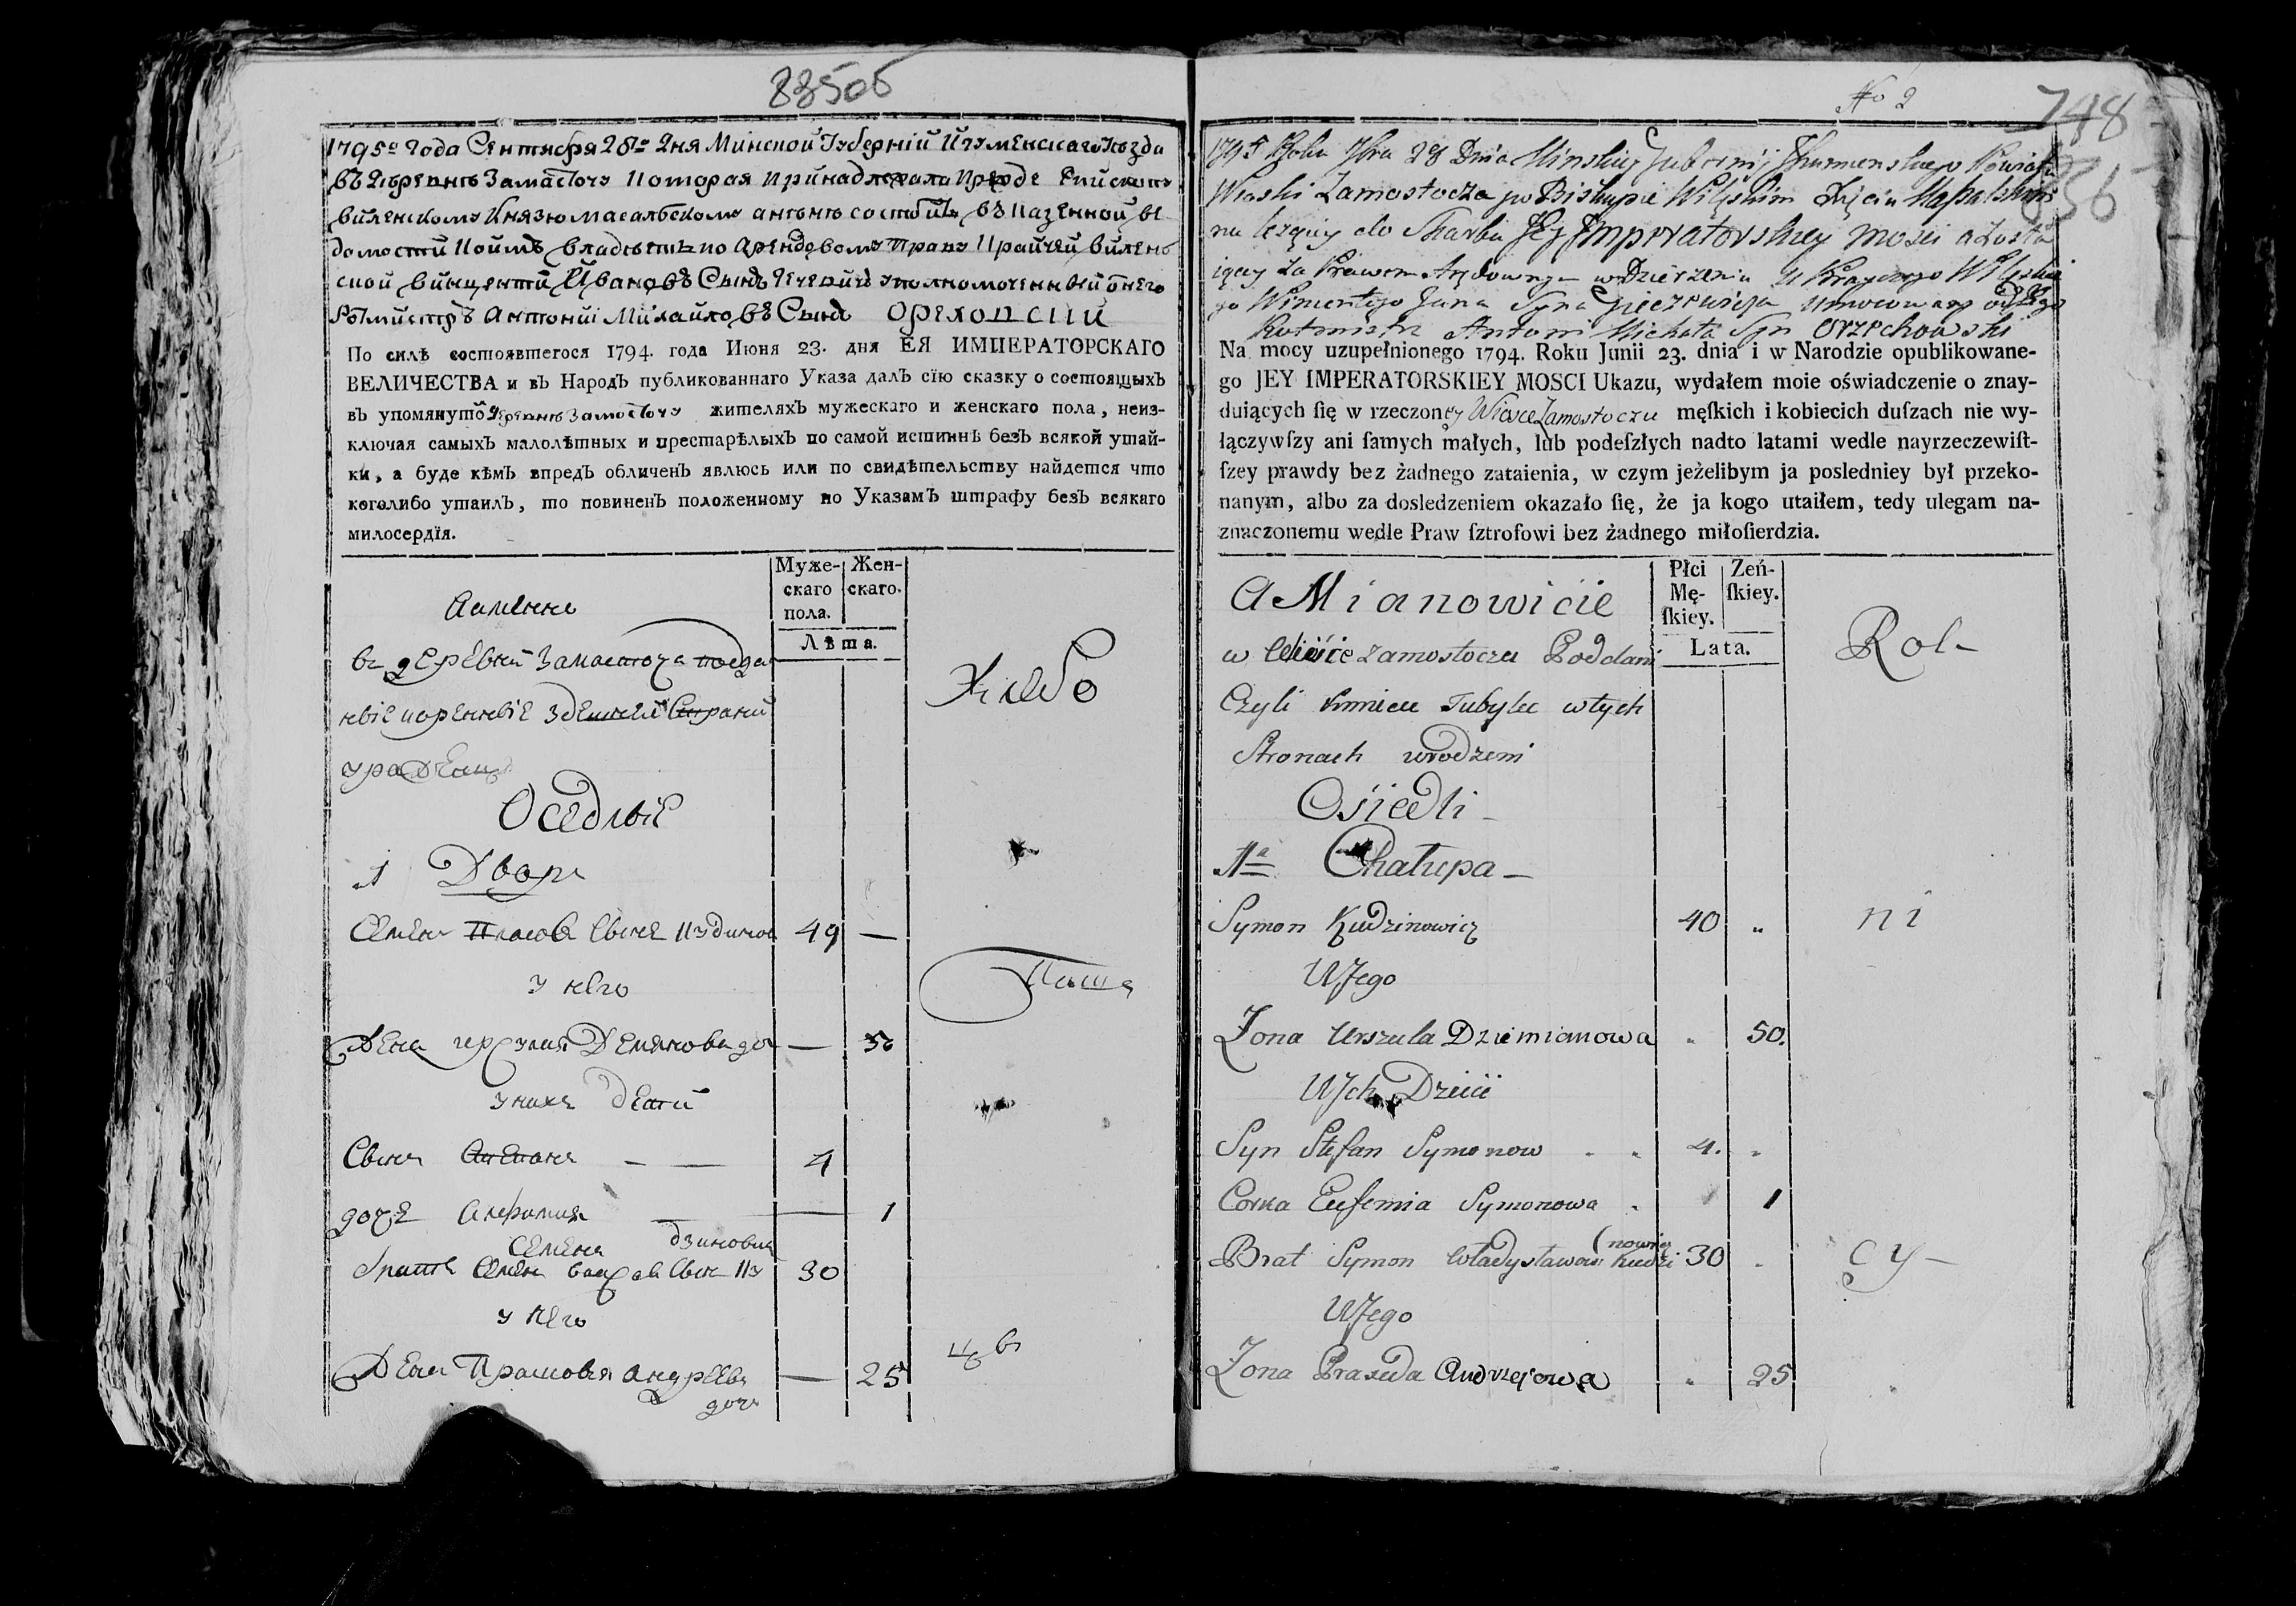 8350б
1795го Года Сентября 28го Дня Минской Губерніи Игуменскаго Уезда
въ деревнѣ Замасточу которая принадлежала прежде Епископу
виленскому Князю масалскому а нынѣ состоитъ въ Казенной ве
домости коимъ владѣетъ по Арендовому праву Крайчей вилен
ской винцентй Ивановъ Сынъ Гечевичъ уполномоченный от него
Ротмистръ Антоній Михайловъ Сынъ Орехопскій
По силѣ состоявшегося 1794. года Июня 23. дня ЕЯ ИМПЕРАТОРСКАГО
ВЕЛИЧЕСТВА и въ Народъ публикованнаго Указа далъ сїю сказку о состоящыхъ
въ упомянутой деревнѣ Замосточу жителяхъ мужескаго и женскаго пола, неиз-
ключая самыхъ малолѣтных и престарѣлыхъ по самой истиннѣ безъ всякой утай-
ки, а буде кѣмъ впредъ обличенъ явлюсь или по свидѣтельству найдется что
коголибо утаилъ, то повиненъ положенному по Указамъ штрафу безъ всякаго
милосердїя.
Муже-скаго пола. Жен-скаго.
Лѣта.
Аименно
въ деревни Замасточа подда
ные коренные здешней Старани
Хлебо
Оседлые
1 Дворъ
Семен Сынъ Кудинов 49 —
у него
Паша
Жена Демянова доч — 50
у нихъ дети
Сынъ Степанъ — — 4
дочь Афимия — — 1
Семена дзинович
братъ Сынъ Ку 30
у него
цы
Жена Прасковя андреева — 25
дочь
No 2
748
1795 Roku 7bra 28 Dnia Minskiey Gubernij Ihumenskiego Powiatu
Wioski Zamostocza po Biskupie Wileńskim Xięciu Massalskim
należącey do Skarbu Jey Imperatorskiey Mości a zosta
iącey za Prawem Arędownym w Dzierżeniu u Krayczego Wileńskie
go Wincentego Jana Syna Gieczewicza umocowany od Niego
Rotmistrz Antoni Michała Syn Orzechowski
Na mocy uzupełnionego 1794. Roku Junii 23. dnia i w Narodzie opublikowane-
go JEY IMPERATORSKIEY MOSCI Ukazu, wydałem moie oświadczenie o znay-
duiących ſię w rzeczoney Wiosce Zamostoczu męſkich i kobiecich duſzach nie wy-
łączywſzy ani ſamych małych, lub podeſzłych nadto latami wedle nayrzeczewiſt-
ſzey prawdy bez żadnego zataienia, w czym jeżelibym ja posledniey był przeko-
nanym, albo za dosledzeniem okazało ſię, że ja kogo utaiłem, tedy ulegam na-
znaczonemu wedle Praw ſztrofowi bez żadnego miłoſierdzia.
Płci Mę-ſkiey. Zeń-ſkiey.
Lata.
A Mianowicie
Rol-
w Wiosce Zamostoczu Poddani
Czyli kmiecie Tubylcy w tych
Stronach urodzeni
Osiedli
1a Chałupa
Symon Kudzinowicz 40 "
ni
U Jego
Zona Urszula Dziemianowa " 50.
U Ich Dzieci
Syn Stefan Symonow " " 4. "
Corka Eufemia Symonowa " 1
(nowicz
Brat Symon Władysławow Kudzi 30 "
cy
U Jego
Zona Praxeda Andrzejowa " 25